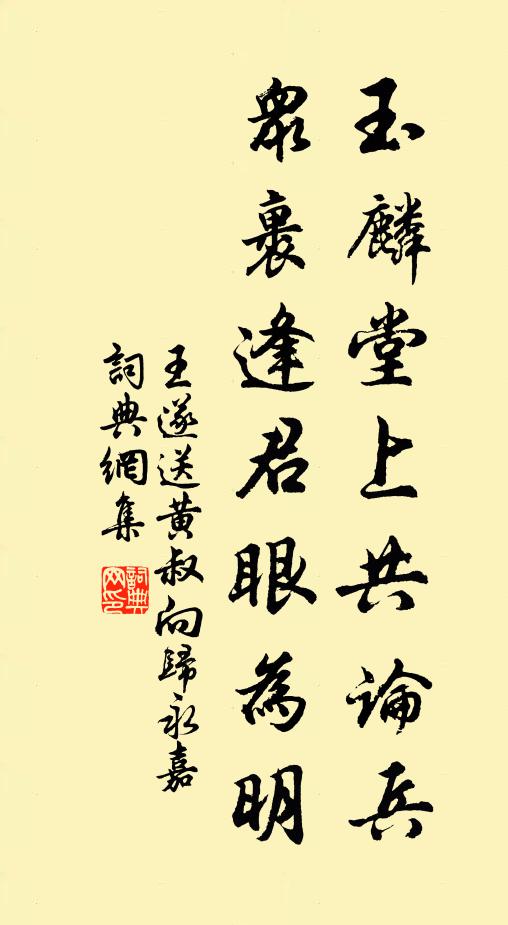 玉麟堂上共論兵
眾裏逢君眼為明
王遂送黃叔向歸永嘉
詞典網集
詞典網印